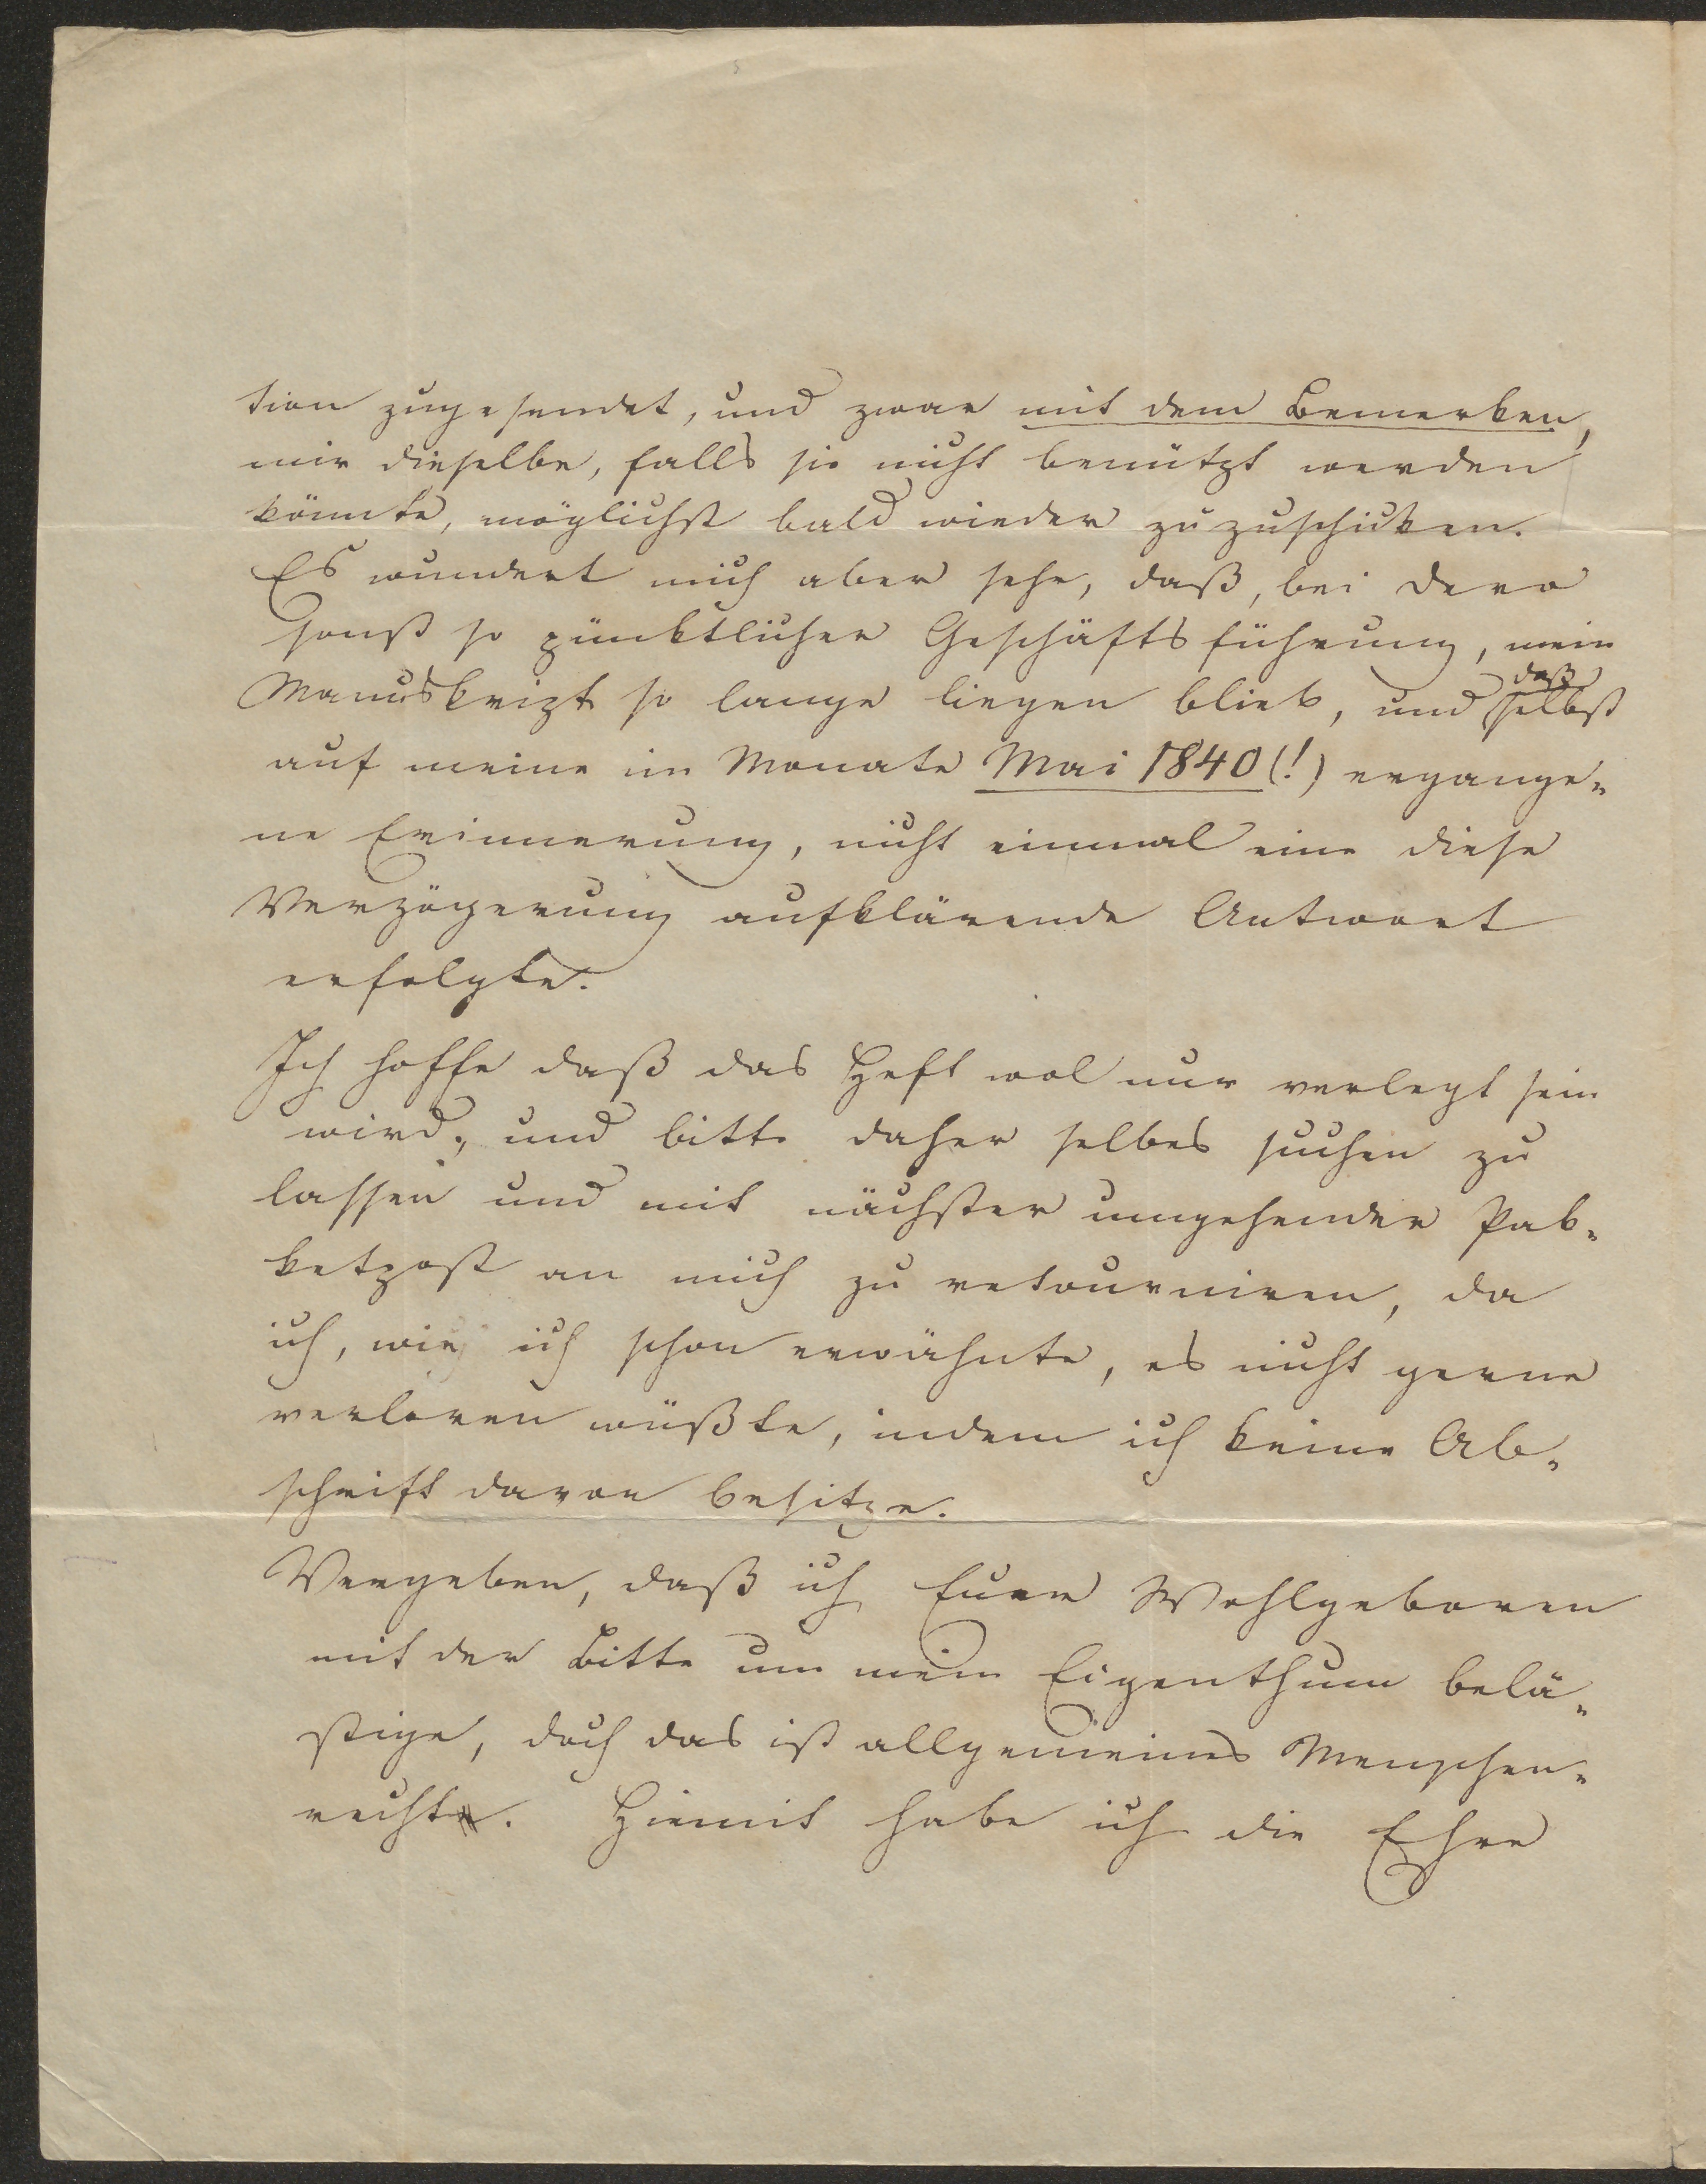 tion zugesendet, und zwar mit dem Bemerken,
mir dieselbe, falls sie nicht benützt werden
könnte, möglichst bald wieder zuzuschicken.
Es wundert mich aber sehr, daß, bei dero
sonst so pünktlicher Geschäftsführung, mein
Manuskript so lange liegen blieb, und daß selbst
auf meine im Monate Mai 1840 (!) ergange-
ne Erinnerung, nicht einmal eine diese
Verzögerung aufklärende Antwort
erfolgte.
Ich hoffe daß das Heft wol nur verlegt sein
wird, und bitte daher selbes suchen zu
lassen und mit nächster umgehender Pak-
ketpost an mich zu retourniren, da
ich, wie ich schon erwähnte, es nicht gerne
verloren wüßte, indem ich keine Ab-
schrift davon besitze.
Vergeben, daß ich Euer Wohlgeboren
mit der Bitte um mein Eigenthum belä-
stige, doch das ist allgemeines Menschen-
recht. Hiemit habe ich die Ehre